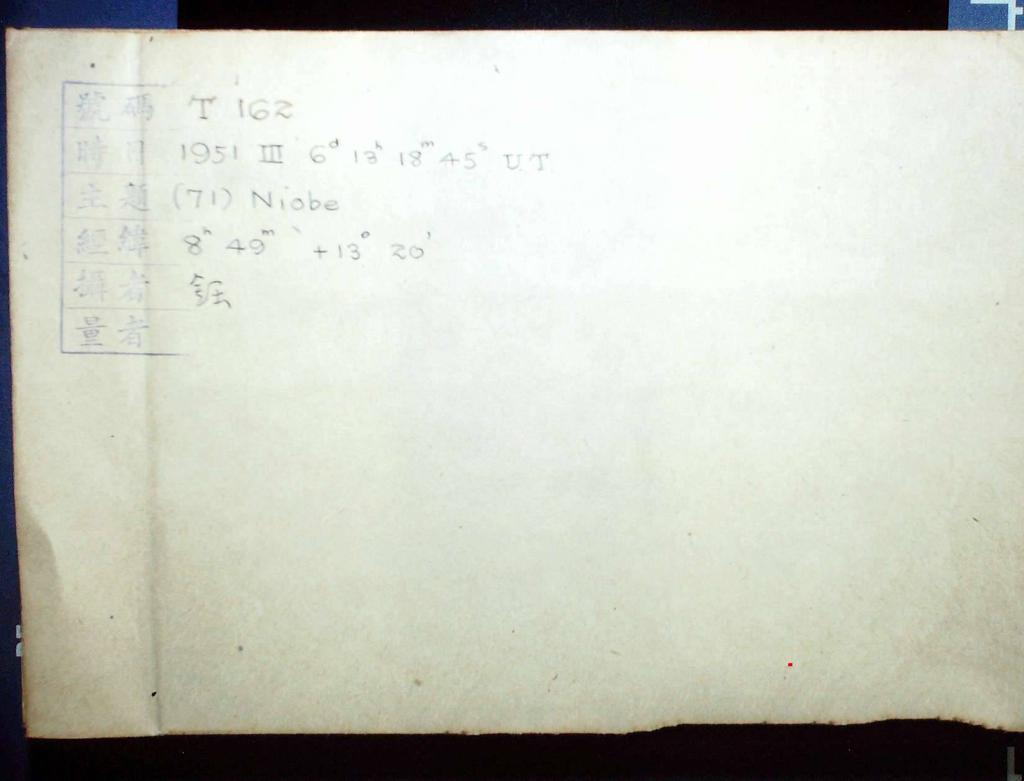 號碼 T 162
時日 1951 III 6ᵈ 13ʰ 18ᵐ 45ˢ U.T.
主題 (71) Niobe
經緯 8ʰ 49ᵐ +13° 20'
攝者
量者